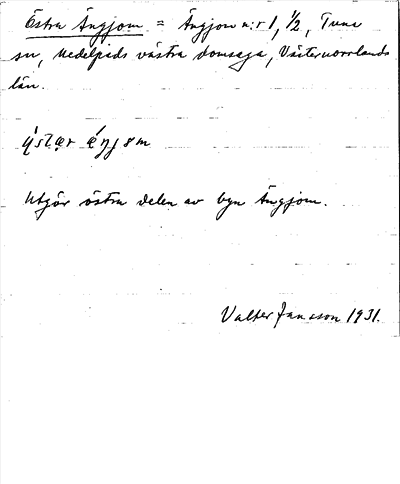 Östra Ängjom = Ängjom n:r 1, 1/2, Tuna
sn, Medelpads västra domsaga, Västernorrlands
län.
Utgör östra delen av byn Ängjom.
Valter Jansson 1931.